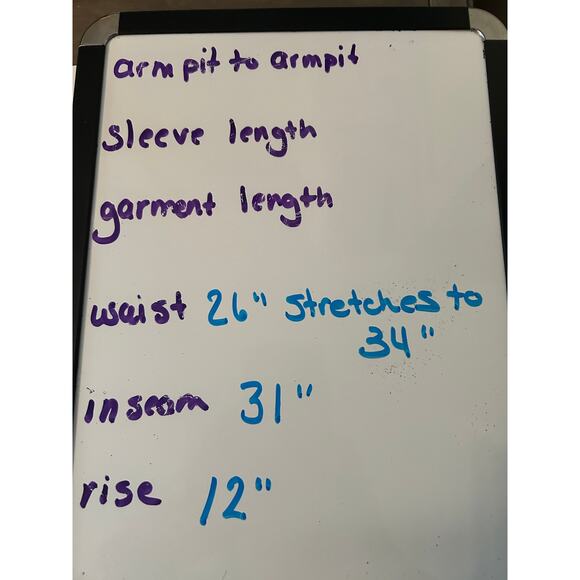 armpit to armpit
sleeve length
garment length
waist 26" stretches to
34"
inseam 31"
rise 12"